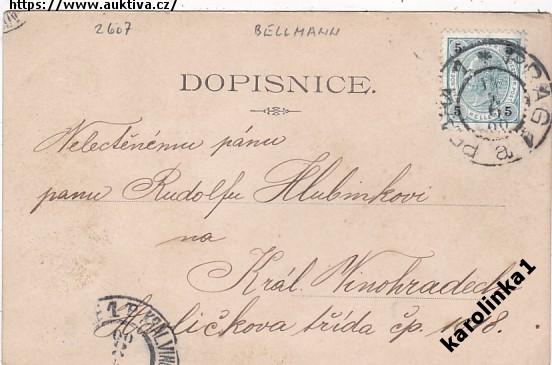 https://www.auktiva.cz/
2607 BELLMANN
DOPISNICE.
5 5
HELLER
PRAG 1 * PRAHA 1
Velectěnému pánu
panu Rudolfu Hlubinkovi
na
Král. Vinohradech
Havlíčkova třída čp. 1698.
KRÁL. VINO
karolinka1